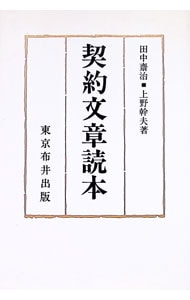 田中齋治■上野幹夫著
契約文章読本
東京布井出版